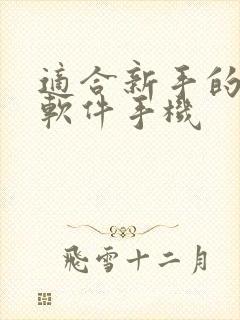 適合新手的
軟件手機
飛雪十二月